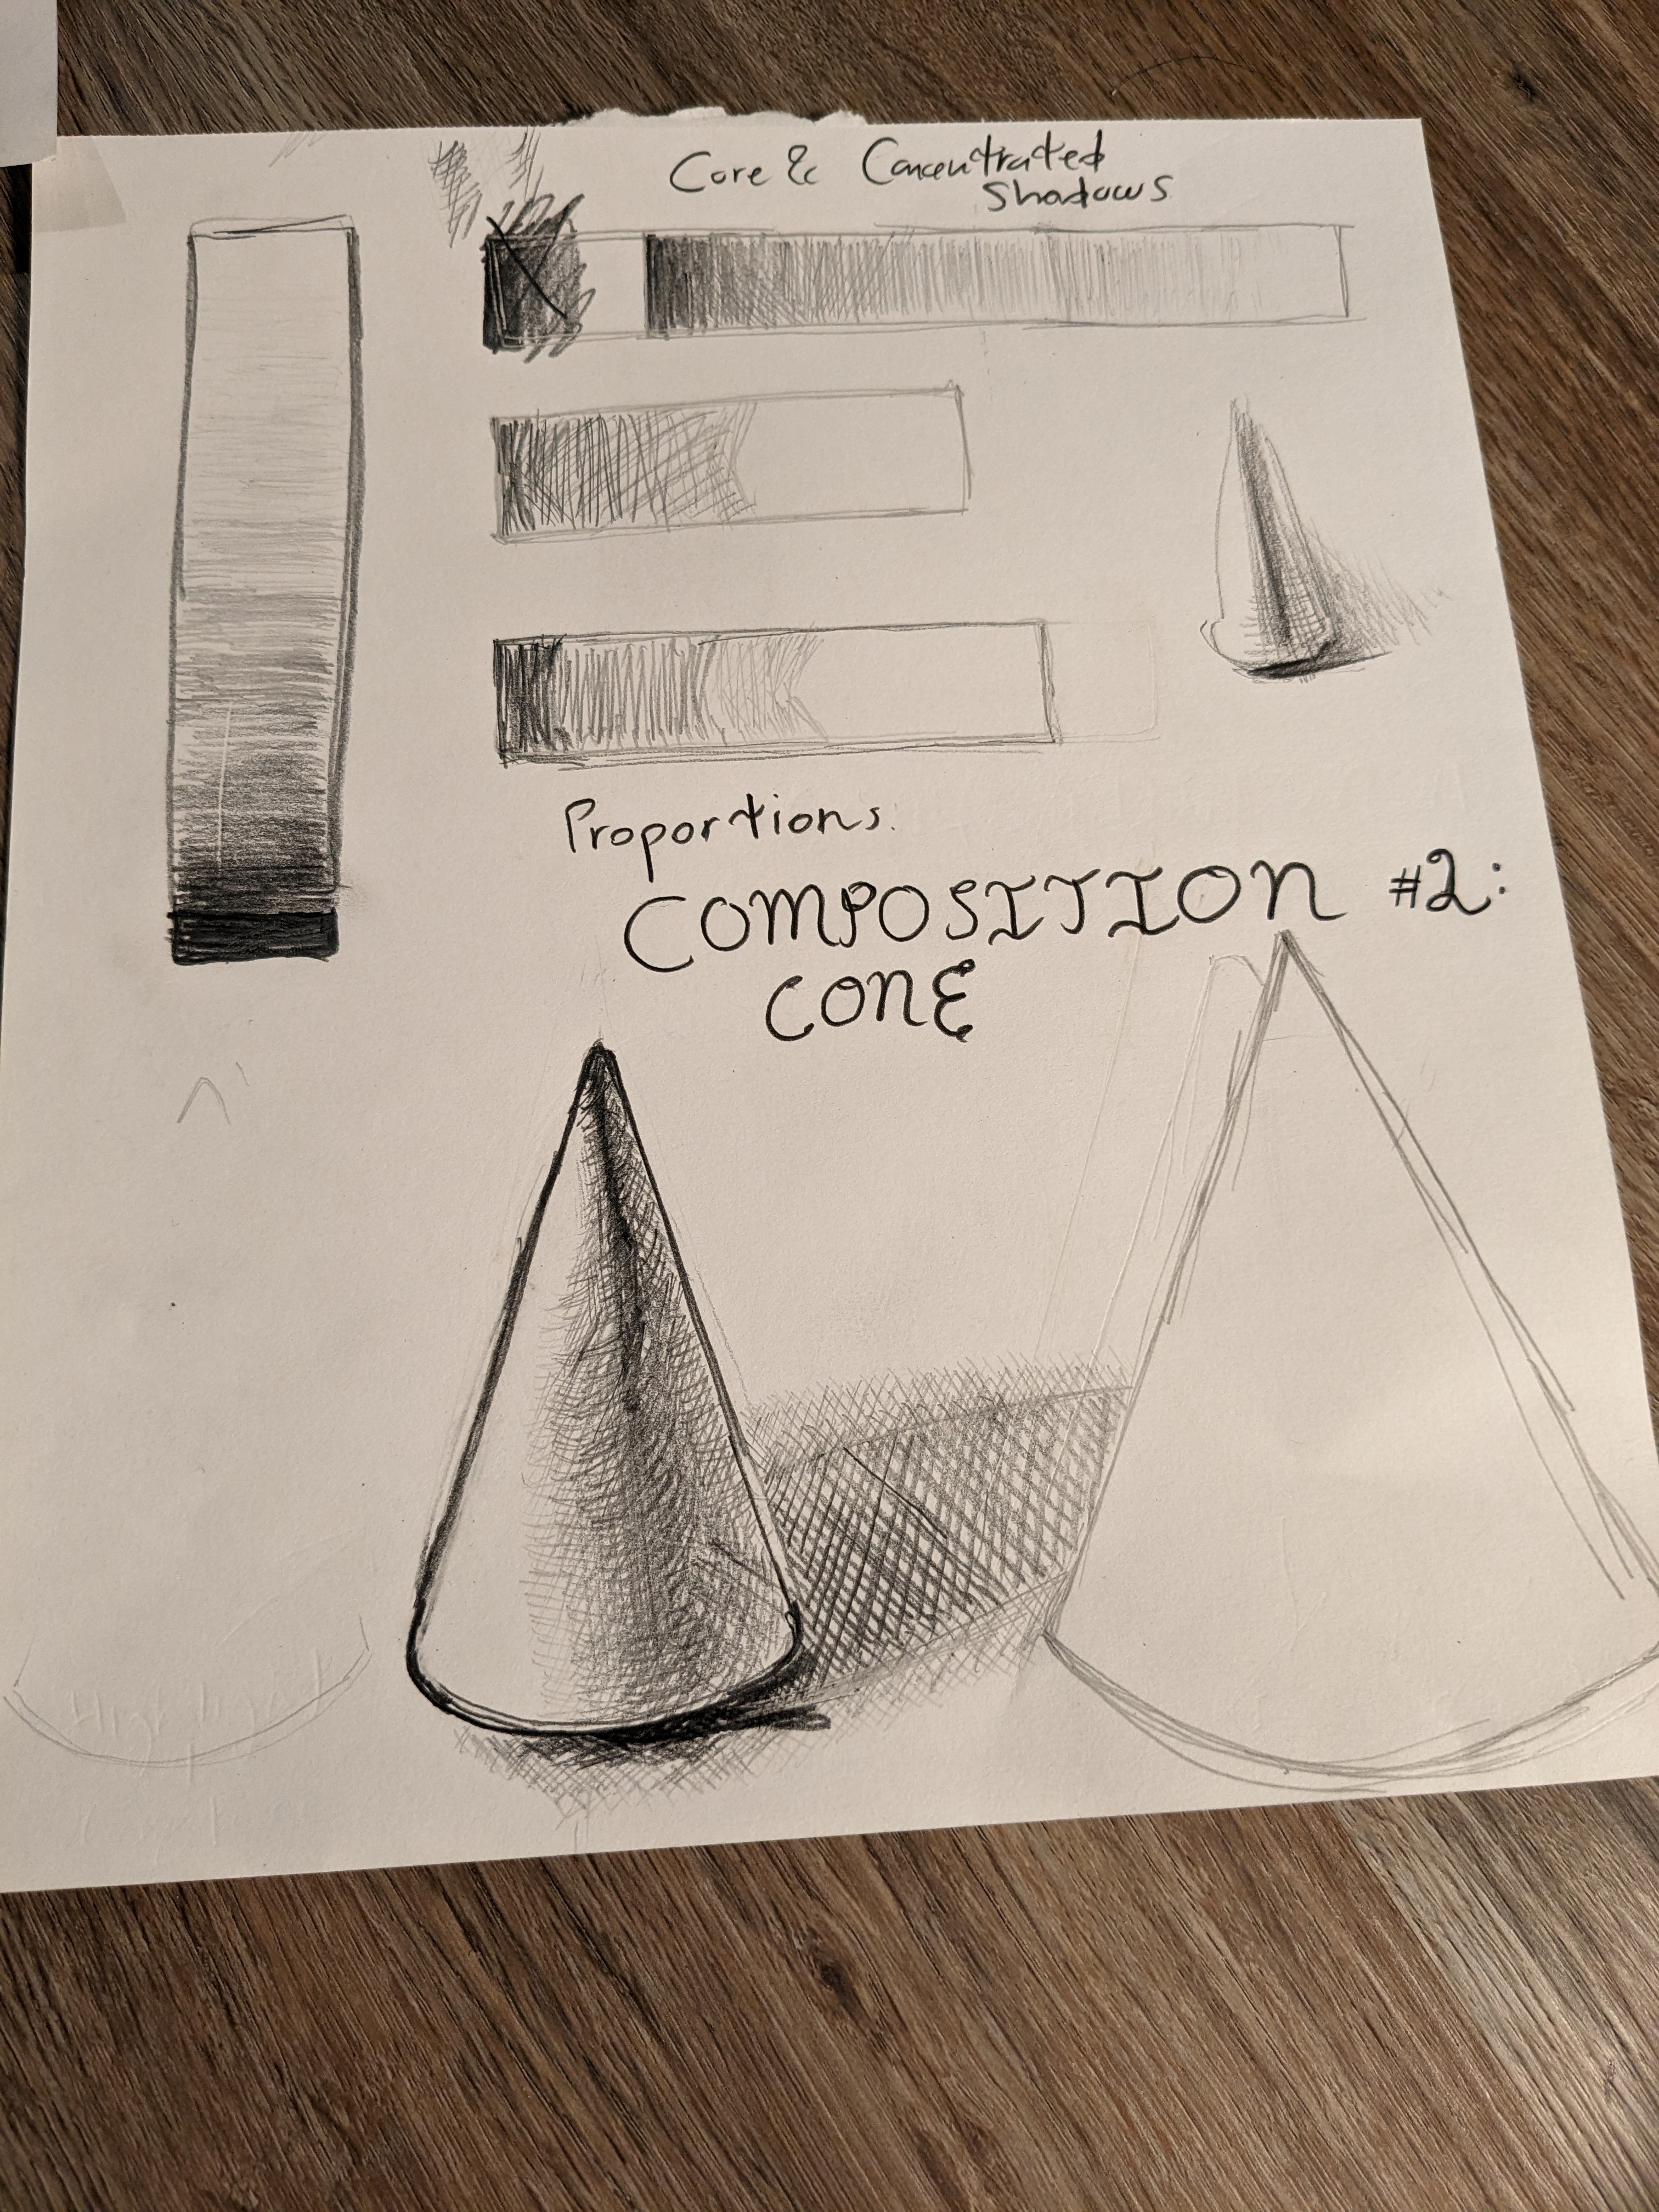 Core & Concentrated
Shadows
Proportions.
COMPOSITION #2:
CONE
Highlight